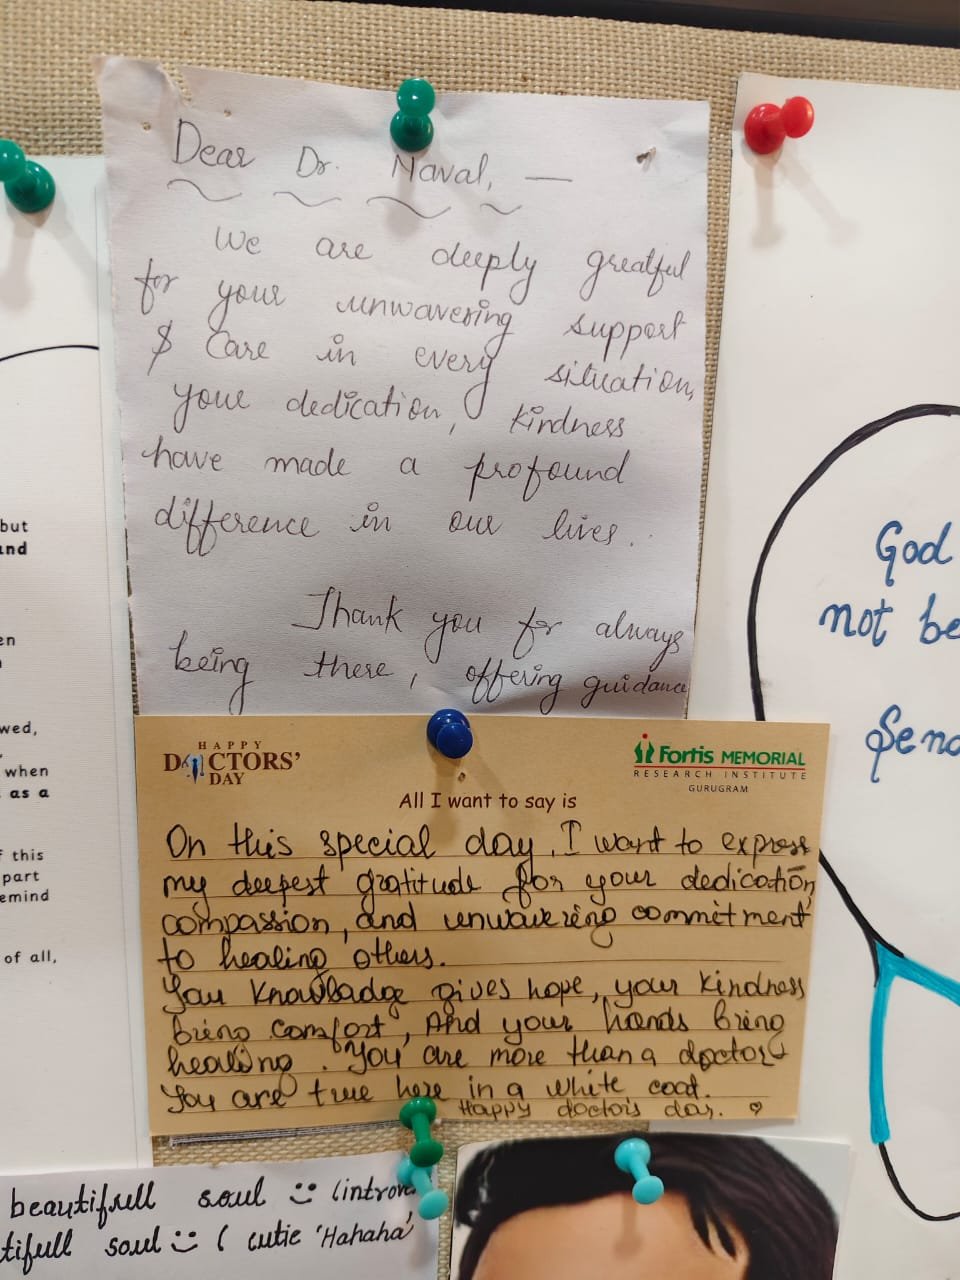 Dear Dr. Naval, —
We are deeply greatful
for your unwavering support
& Care in every situation,
your dedication, kindness
have made a profound
difference in our lives.
Thank you for always
being there, offering guidance
HAPPY
DOCTORS'
DAY
Fortis MEMORIAL
RESEARCH INSTITUTE
GURUGRAM
All I want to say is
On this special day, I want to express
my deepest gratitude for your dedication,
compassion, and unwavering commitment
to healing others.
You knowladge gives hope, your kindness
bring comfort, And your hands bring
healing. You are more than a doctor
You are true here in a white coat.
Happy doctors day. ♡
but
and
en
wed,
when
as a
this
part
emind
of all,
God
not be
Send
beautifull soul (introve
tifull soul ( cutie 'Hahaha'